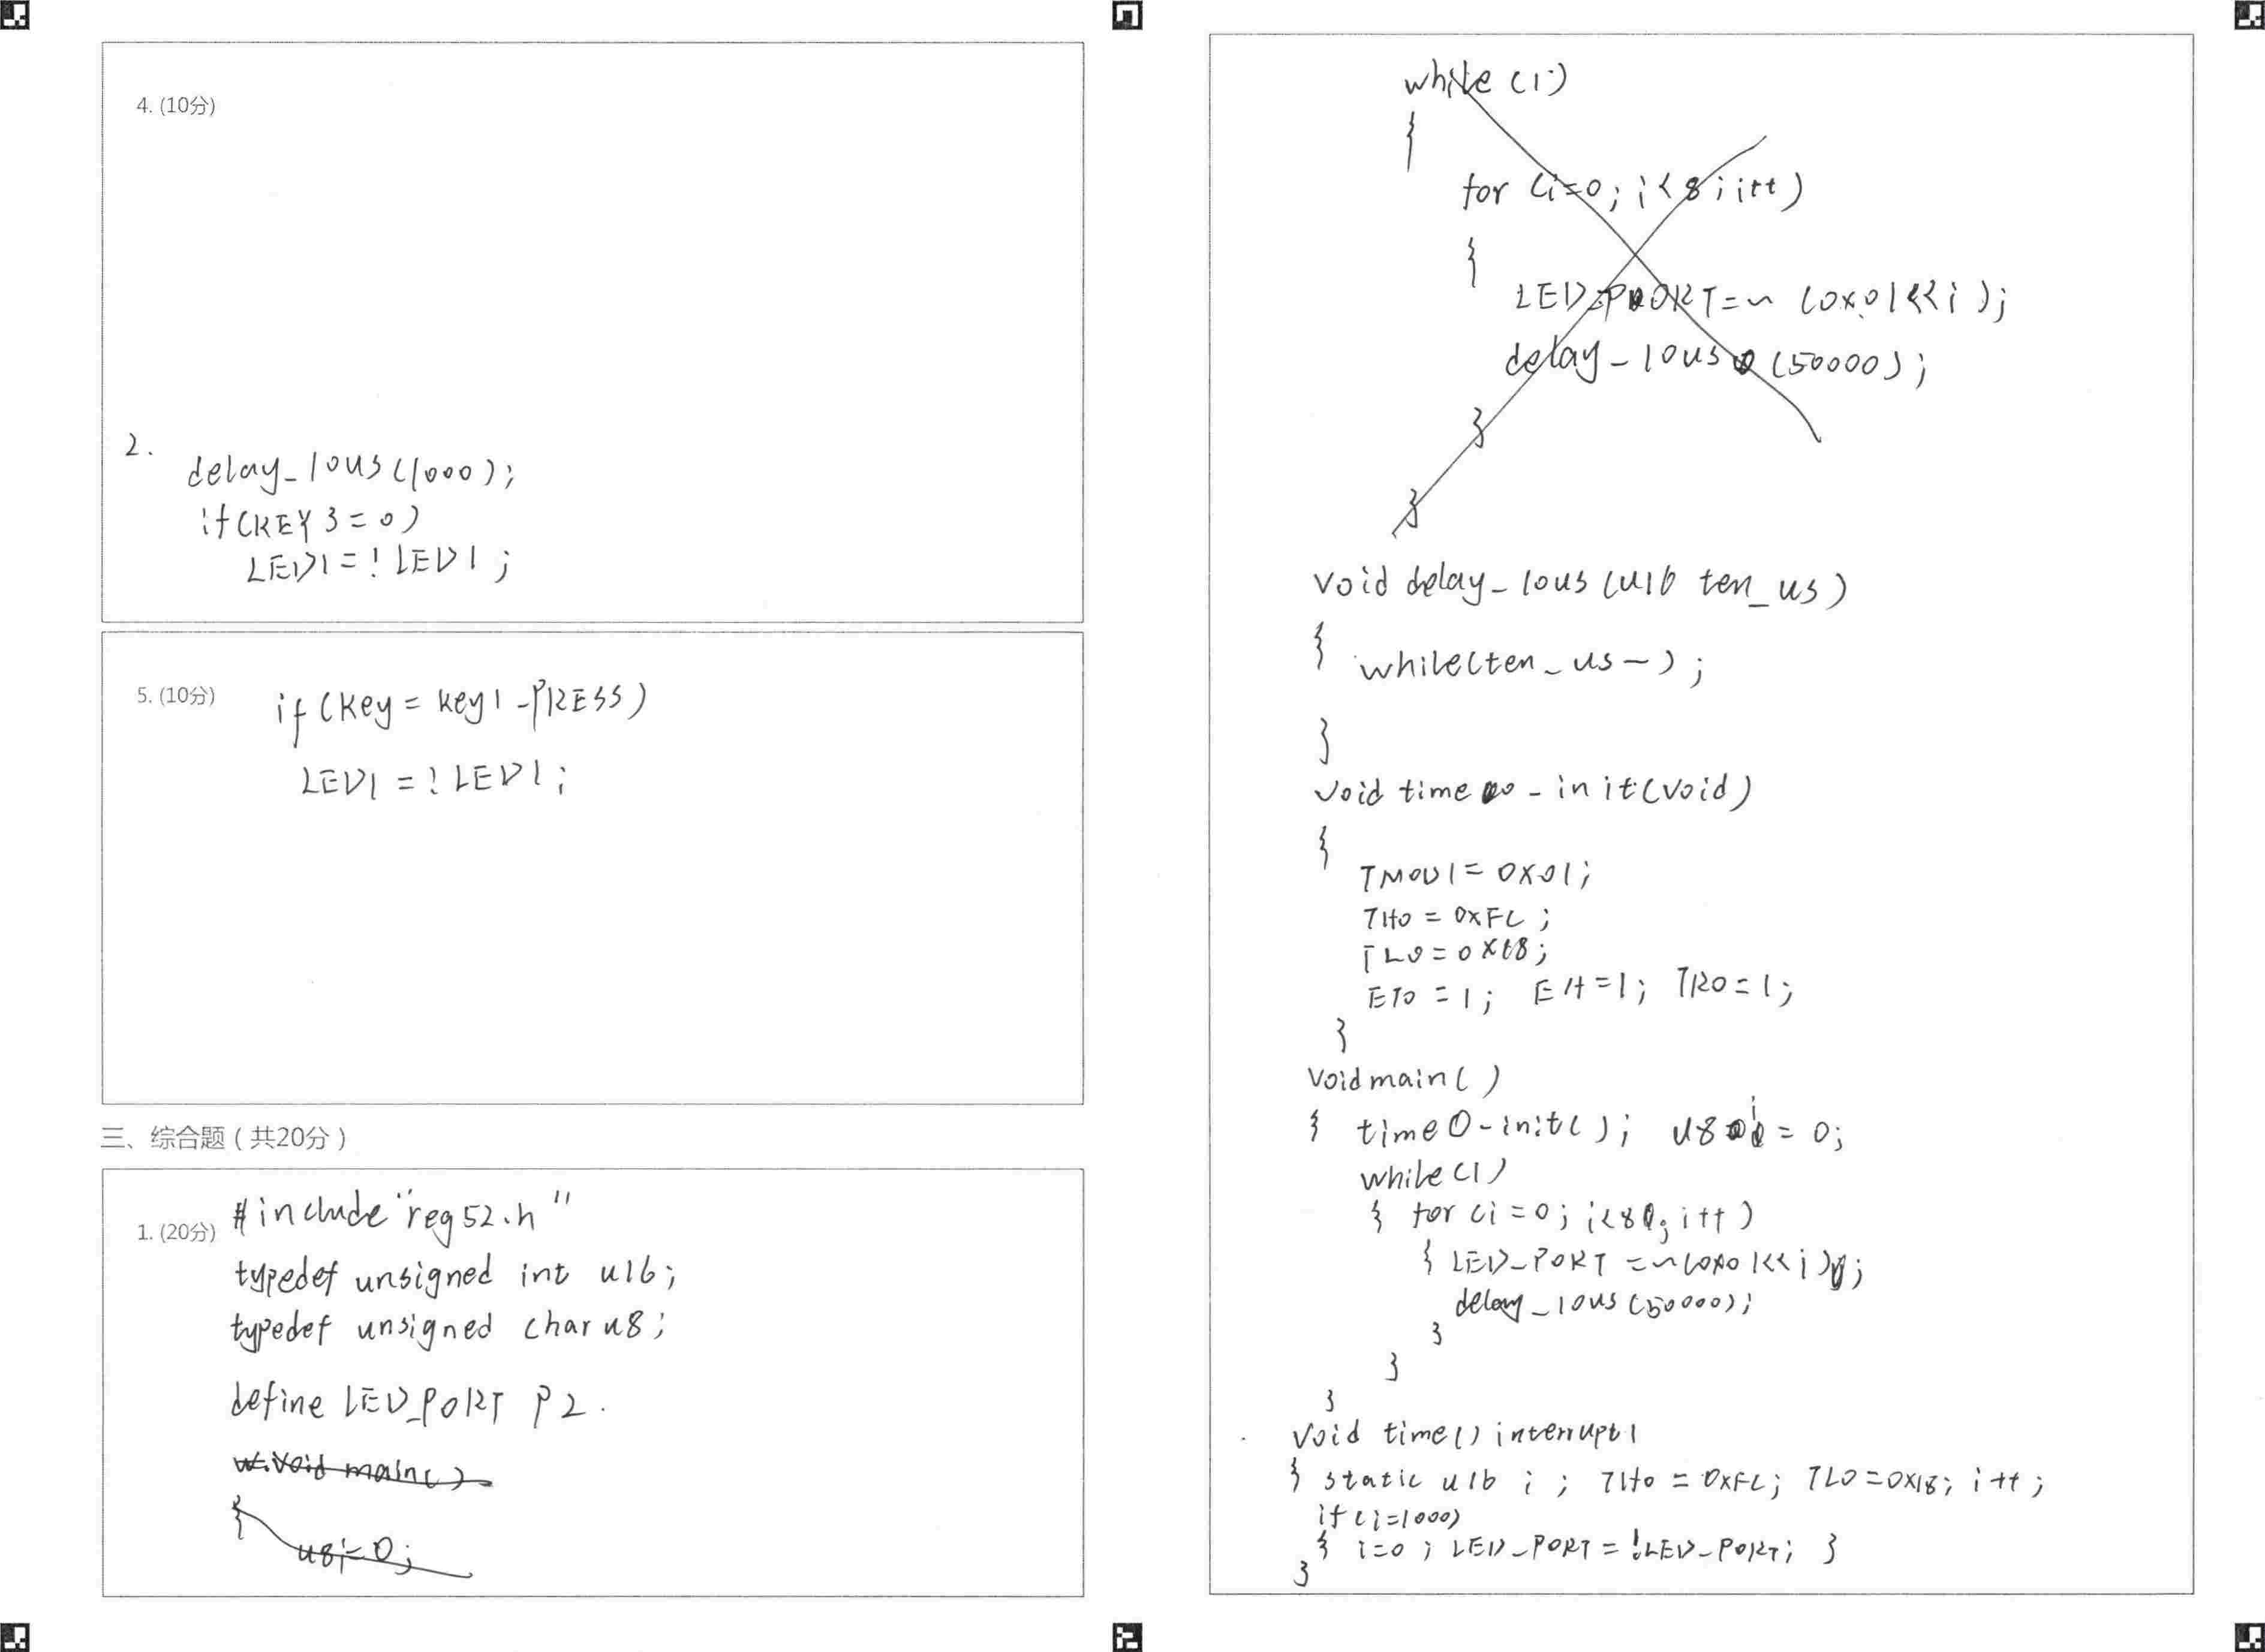 4. (10分)
2.
delay_10us(1000);
if(KEY3=0)
LED1=!LED1;
5. (10分)
if(Key=key1_PRESS)
LED1=!LED1;
三、综合题（共20分）
1. (20分)
#include"reg52.h"
typedef unsigned int u16;
typedef unsigned char u8;
define LED_PORT P2.
void main()
{
u8i=0;
while(1)
{
for(i=0;i<8;i++)
{
LED_PORT=~(0x01<<i);
delay_10us(50000);
}
}
void delay_10us(u16 ten_us)
{
while(ten_us-);
}
void time0-init(void)
{
TMOD1=0X01;
TH0=0XFC;
TL0=0X18;
ET0=1; EA=1; TR0=1;
}
void main()
{ time0-init(); u8 i=0;
while(1)
{ for(i=0;i<8;i++)
{ LED_PORT=~(0x01<<i);
delay_10us(50000);
}
}
}
void time() interrupt1
{ static u16 i; TH0=0XFC; TL0=0X18; i++;
if(i=1000)
{ i=0; LED_PORT=!LED_PORT; }
}